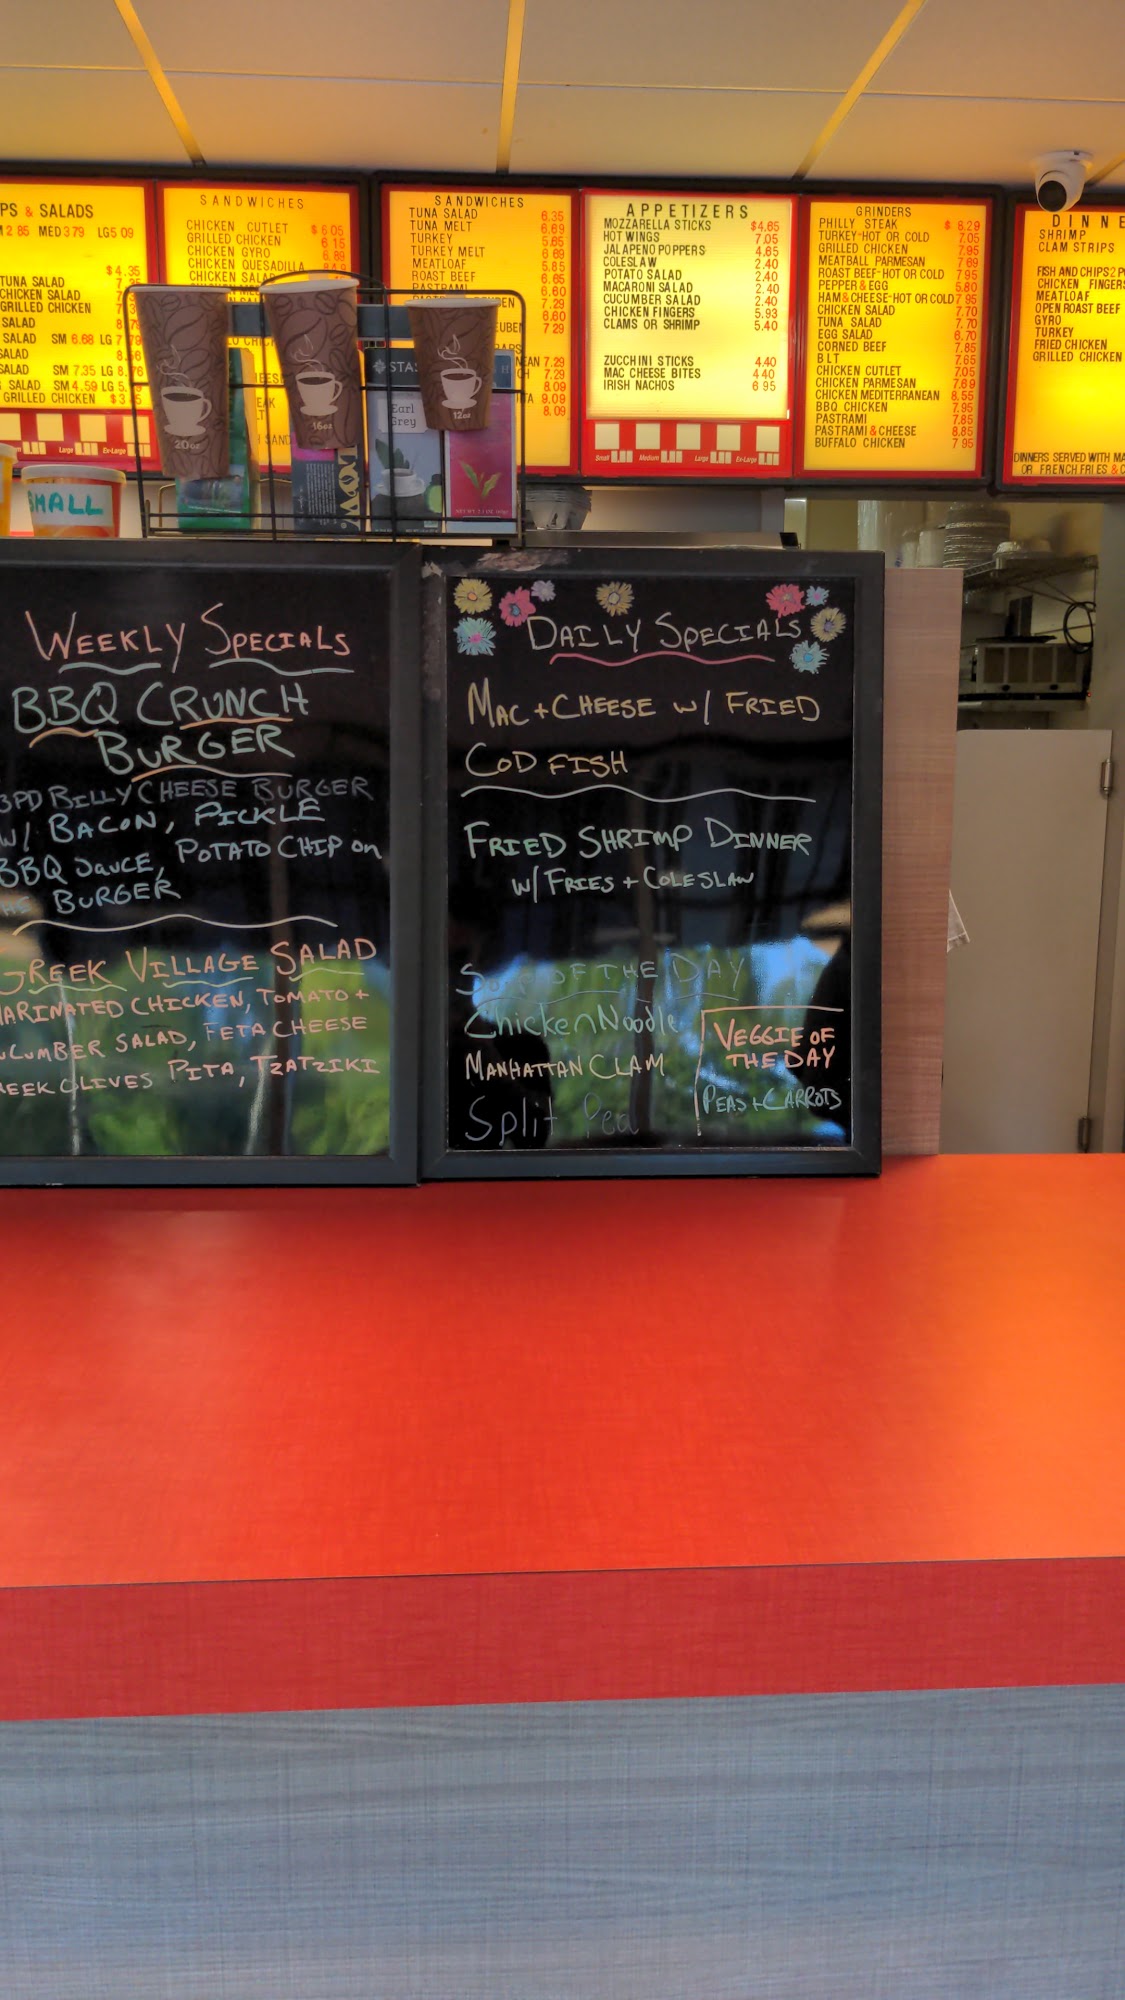 PS & SALADS
2 85 MED 3 79 LG 5 09
$4.35
TUNA SALAD
CHICKEN SALAD
GRILLED CHICKEN
SALAD
SALAD SM 6.68 LG
SALAD
SALAD SM 7.35 LG
SALAD SM 4.59 LG 5
GRILLED CHICKEN
SANDWICHES
CHICKEN CUTLET $ 6 05
GRILLED CHICKEN 6 15
CHICKEN GYRO 6.89
CHICKEN QUESADILLA
CHICKEN SALAD
SANDWICHES
TUNA SALAD 6.35
TUNA MELT 6.69
TURKEY 5.65
TURKEY MELT 6 69
MEATLOAF 5.85
ROAST BEEF 6.65
PASTRAMI 6.60
7.29
6.60
7 29
7.29
7.29
8.09
9.09
8.09
APPETIZERS
MOZZARELLA STICKS $4.65
HOT WINGS 7.05
JALAPENO POPPERS 4.65
COLESLAW 2.40
POTATO SALAD 2.40
MACARONI SALAD 2.40
CUCUMBER SALAD 2.40
CHICKEN FINGERS 5.93
CLAMS OR SHRIMP 5.40
ZUCCHINI STICKS 4.40
MAC CHEESE BITES 4 40
IRISH NACHOS 6 95
Small Medium Large Ex-Large
GRINDERS
PHILLY STEAK $ 8.29
TURKEY-HOT OR COLD 7.05
GRILLED CHICKEN 7.95
MEATBALL PARMESAN 7 69
ROAST BEEF-HOT OR COLD 7 95
PEPPER & EGG 5.80
HAM & CHEESE-HOT OR COLD 7 95
CHICKEN SALAD 7.70
TUNA SALAD 7.70
EGG SALAD 6.70
CORNED BEEF 7.85
BLT 7.65
CHICKEN CUTLET 7.05
CHICKEN PARMESAN 7 69
CHICKEN MEDITERRANEAN 8.55
BBQ CHICKEN 7.95
PASTRAMI 7.85
PASTRAMI & CHEESE 8.85
BUFFALO CHICKEN 7 95
DINNE
SHRIMP
CLAM STRIPS
FISH AND CHIPS 2 P
CHICKEN FINGERS
MEATLOAF
OPEN ROAST BEEF
GYRO
TURKEY
FRIED CHICKEN
GRILLED CHICKEN
DINNERS SERVED WITH MA
OR FRENCH FRIES & C
Large Ex-Large
20oz
16oz
12oz
STAS
Earl
Grey
SMALL
WEEKLY SPECIALS
BBQ CRUNCH
BURGER
3PD BILLY CHEESE BURGER
W/ BACON, PICKLE
BBQ SAUCE, POTATO CHIP on
THE BURGER
GREEK VILLAGE SALAD
MARINATED CHICKEN, TOMATO +
CUCUMBER SALAD, FETA CHEESE
REEK OLIVES PITA, TZATZIKI
DAILY SPECIALS
MAC + CHEESE W/ FRIED
COD FISH
FRIED SHRIMP DINNER
W/ FRIES + COLESLAW
SOUP OF THE DAY
Chicken Noodle
MANHATTAN CLAM
Split Pea
VEGGIE OF
THE DAY
PEAS + CARROTS